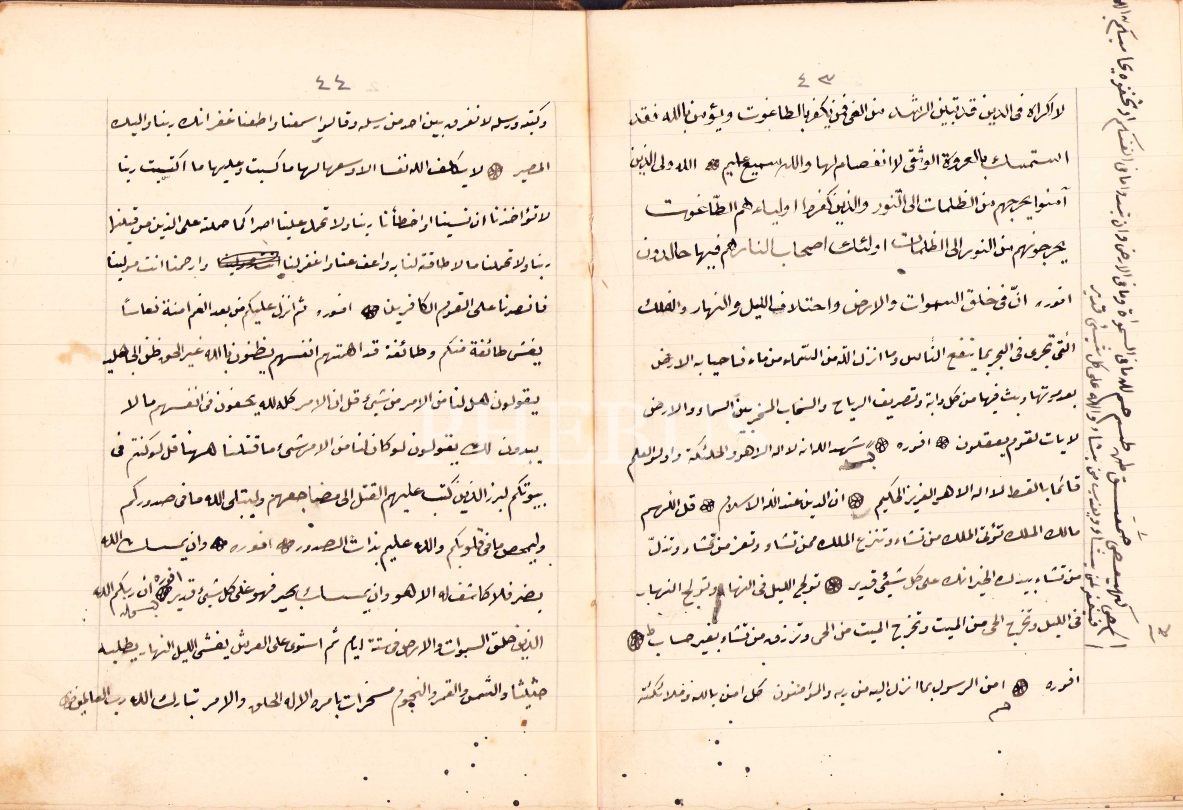 ٤٣
لا اكراه فى الدين قد تبين الرشد من الغى فمن يكفر بالطاغوت ويؤمن بالله فقد
استمسك بالعروة الوثقى لا انفصام لها والله سميع عليم الله ولى الذين
آمنوا يخرجهم من الظلمات الى النور والذين كفروا اولياءهم الطاغوت
يخرجونهم من النور الى الظلمات اولئك اصحاب النار هم فيها خالدون
افوره انّ فى خلق السموات والارض واختلاف الليل والنهار والفلك
التى تجرى فى البحر بما ينفع الناس وما انزل الله من السماء من ماء فاحيا به الارض
بعد موتها وبث فيها من كل دابة وتصريف الرياح والسحاب المسخر بين السماء والارض
لايات لقوم يعقلون افوره شهد الله انه لا اله الا هو والملئكة واولو العلم
قائما بالقسط لا اله الا هو العزيز الحكيم ان الدين عند الله الاسلام قل اللهم
مالك الملك تؤتى الملك من تشاء وتنزع الملك ممن تشاء وتعز من تشاء وتذل
من تشاء بيدك الخير انك على كل شيئ قدير تولج الليل فى النهار وتولج النهار
فى الليل وتخرج الحى من الميت وتخرج الميت من الحى وترزق من تشاء بغير حساب
افوره امن الرسول بما انزل اليه من ربه والمؤمنون كل امن بالله وملائكته
حم لله ما فى السموات وما فى الارض وان تبدوا ما فى انفسكم او تخفوه يحاسبكم به الله
فيغفر لمن يشاء ويعذب من يشاء والله على كل شيئ قدير
٤٤
وكتبه ورسله لا نفرق بين احد من رسله وقالوا سمعنا واطعنا غفرانك ربنا واليك
المصير لا يكلف الله نفسا الا وسعها لها ما كسبت وعليها ما اكتسبت ربنا
لا تؤاخذنا ان نسينا او اخطأنا ربنا ولا تحمل علينا اصرا كما حملته على الذين من قبلنا
ربنا ولا تحملنا ما لا طاقة لنا به واعف عنا واغفر لنا وارحمنا انت مولينا
فانصرنا على القوم الكافرين افوره ثم انزل عليكم من بعد الغم امنة نعاسًا
يغشى طائفة منكم وطائفة قد اهمتهم انفسهم يظنون بالله غير الحق ظن الجاهلية
يقولون هل لنا من الامر من شئ قل ان الامر كله لله يخفون فى انفسهم ما لا
يبدون لك يقولون لو كان لنا من الامر شئ ما قتلنا ههنا قل لو كنتم فى
بيوتكم لبرز الذين كتب عليهم القتل الى مضاجعهم وليبتلى الله ما فى صدوركم
وليمحص ما فى قلوبكم والله عليم بذات الصدور افوره وان يمسسك الله
بضر فلا كاشف له الا هو وان يمسسك بخير فهو على كل شئ قدير افوره ان ربكم الله
الذى خلق السموات والارض فى ستة ايام ثم استوى على العرش يغشى الليل النهار يطلبه
حثيثا والشمس والقمر والنجوم مسخرات بامره الا له الخلق والامر تبارك الله رب العالمين